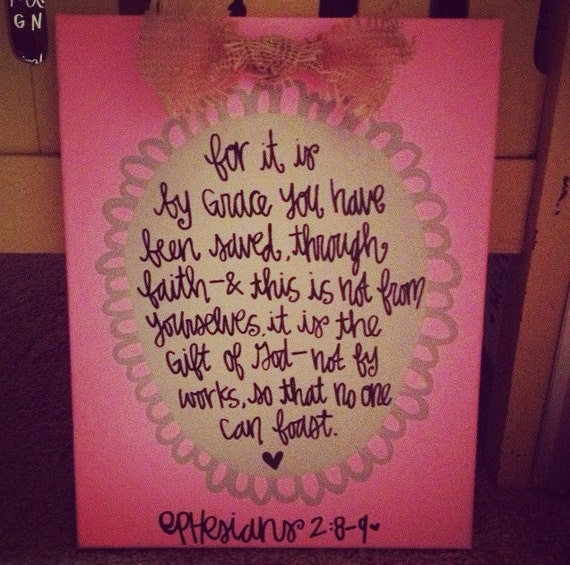 GN
for it is
by Grace you have
been saved, through
faith-& this is not from
yourselves, it is the
Gift of God-not by
works, so that no one
can boast.
ephesians 2:8-9